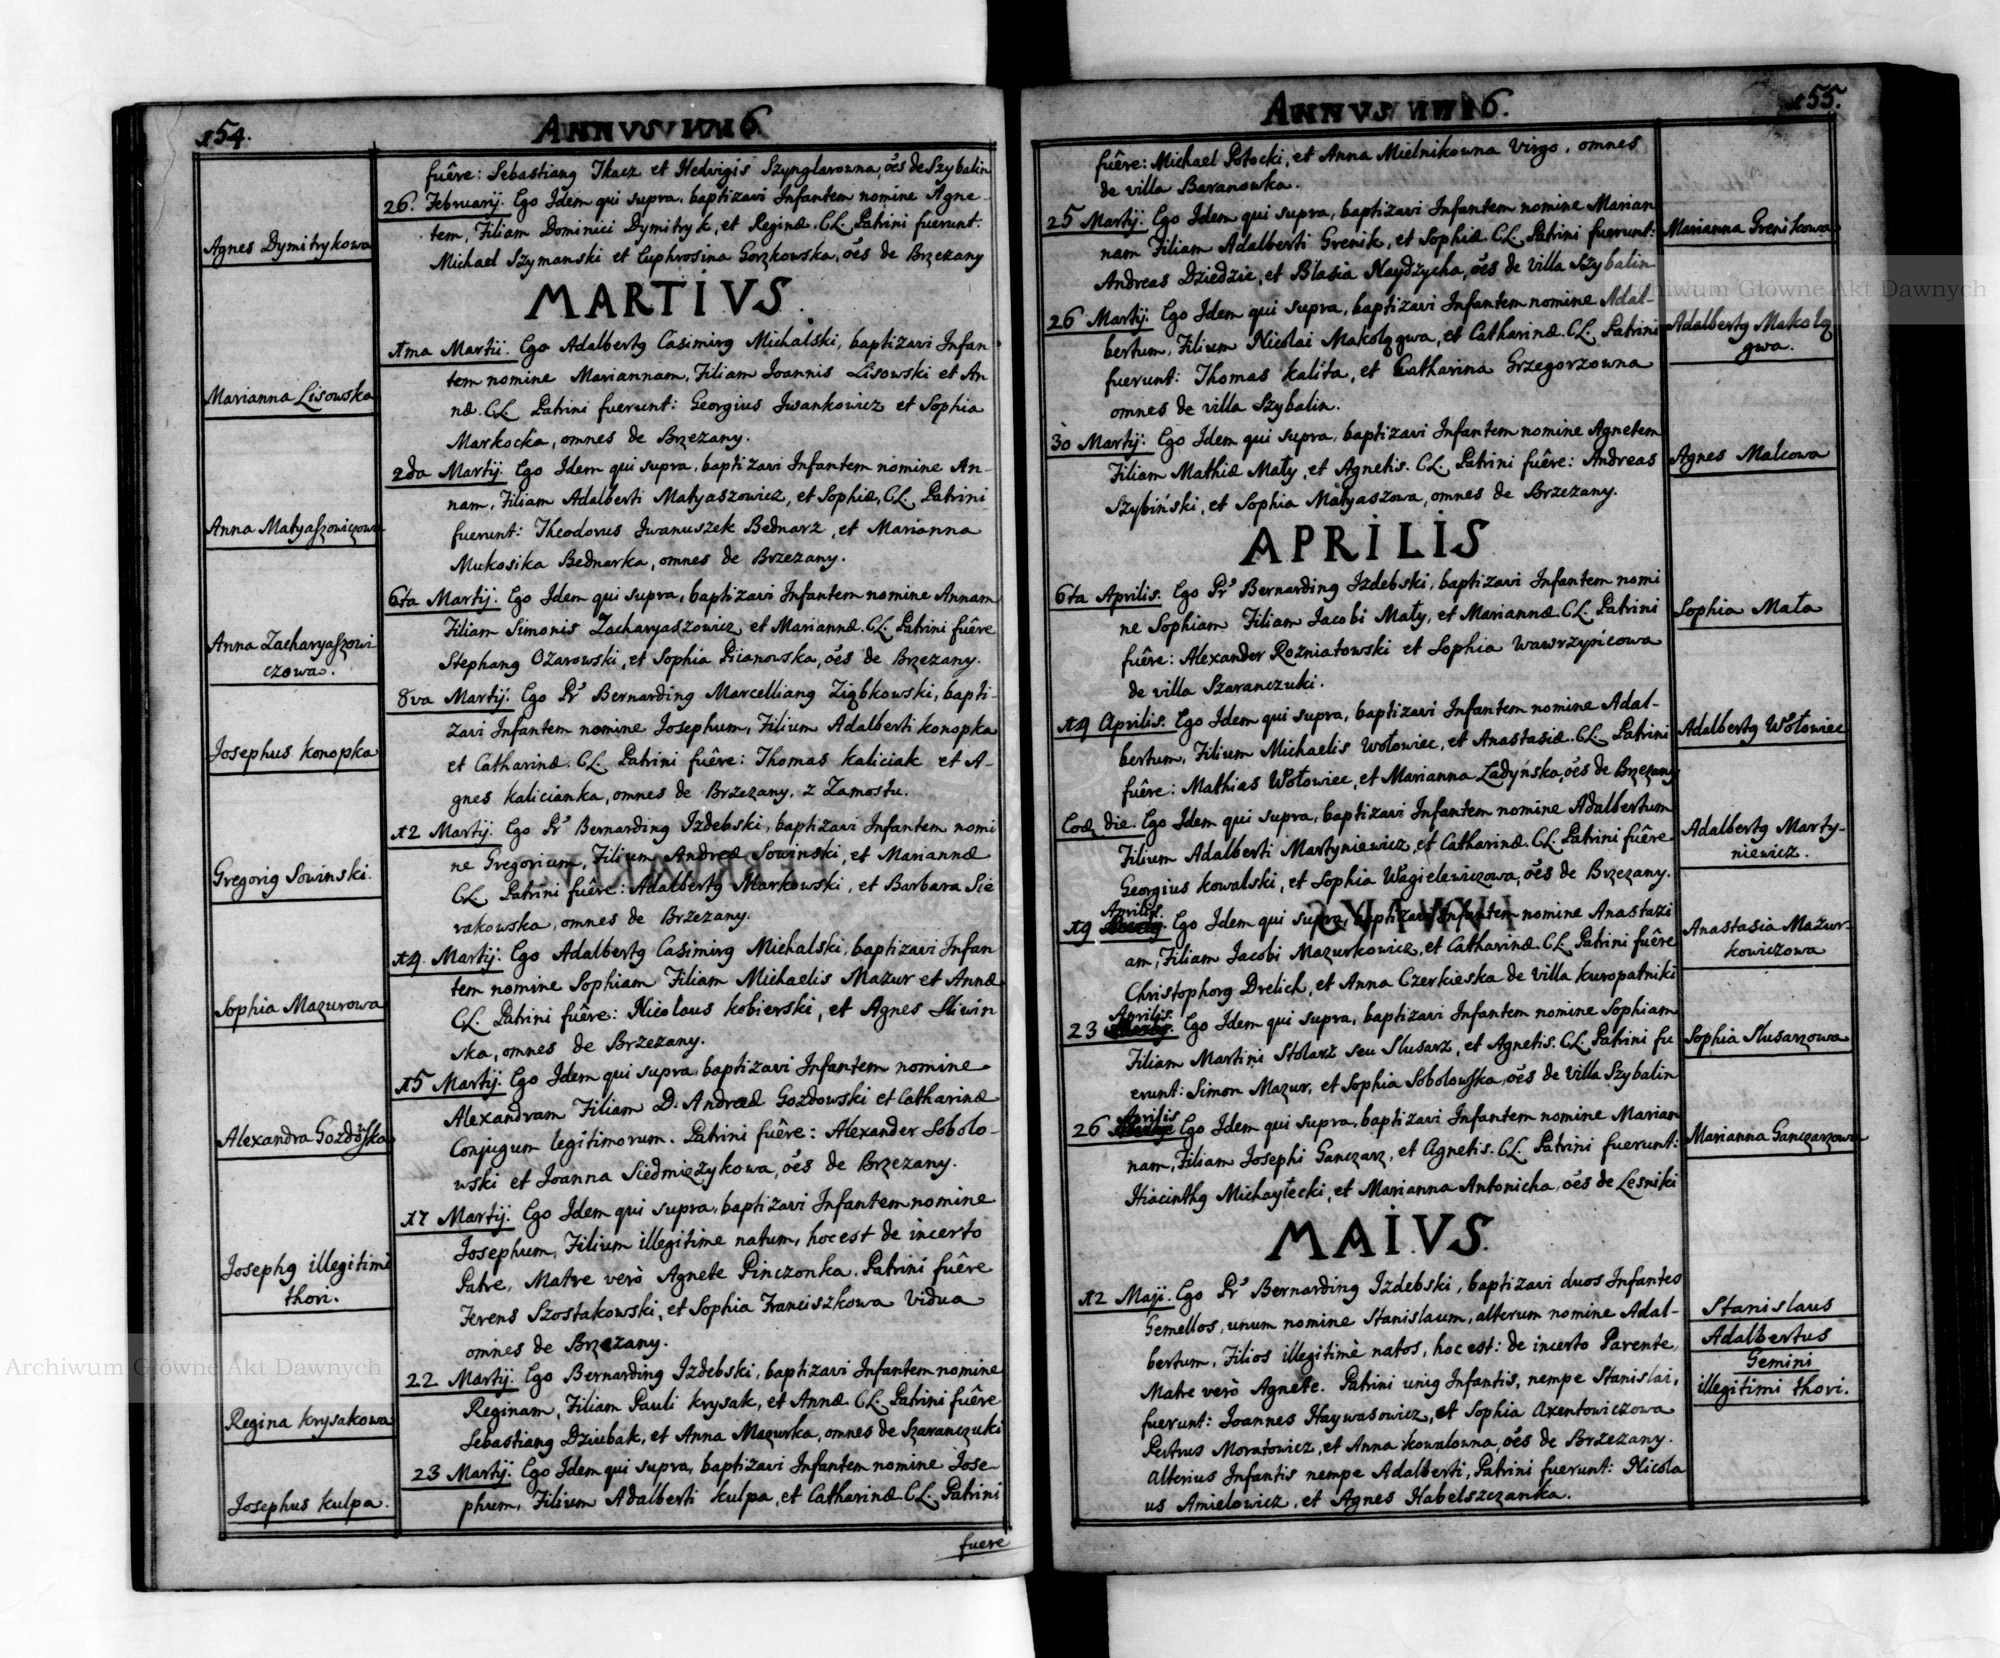 154.
ANNVS 1716.
fuêre: Sebastiang Tkacz et Hedvigis Szynglarowna, oēs de Szybalin
26. Februarij. Ego Idem qui supra, baptizavi Infantem nomine Agne-
Agnes Dymitrykowa
tem, Filiam Dominici Dymitryk, et Reginæ. CL. Patrini fuerunt.
Michael Szymanski et Euphrosina Gorzkowska, oēs de Brzezany
MARTIVS.
1ma Martii. Ego Adalbertg Casimirg Michalski, baptizavi Infan
tem nomine Mariannam, Filiam Joannis Lisowski et An
Marianna Lisowska
næ. CL. Patrini fuerunt: Georgius Jwankowicz et Sophia
Markocka, omnes de Brzezany.
2da Martij. Ego Idem qui supra, baptizavi Infantem nomine An-
nam, Filiam Adalberti Matyaszowicz, et Sophiæ, CL. Patrini
Anna Matyaszowiczowa
fuerunt: Theodorus Jwanuszek Bednarz, et Marianna
Mukosika Bednarka, omnes de Brzezany.
6ta Martij. Ego Idem qui supra, baptizavi Infantem nomine Annam
Filiam Simonis Zacharyaszowicz, et Mariannæ. CL. Patrini fuêre
Anna Zacharyaszowi
czowa.
Stephang Ożarowski, et Sophia Pijanowska, oēs de Brzezany.
8va Martij. Ego Pr Bernarding Marcelliang Ziąbkowski, bapti-
zavi Infantem nomine Josephum, Filium Adalberti konopka
Josephus konopka
et Catharinæ. CL. Patrini fuêre: Thomas kaliciak et A-
gnes kalicianka, omnes de Brzezany. z Zamostu.
12 Martij. Ego Pr Bernarding Izdebski, baptizavi Infantem nomi
ne Gregorium, Filium Andreæ Sowinski, et Mariannæ
Gregorig Sowinski.
CL. Patrini fuêre: Adalbertg Markowski, et Barbara Sie
rakowska, omnes de Brzezany.
14. Martij. Ego Adalbertg Casimirg Michalski, baptizavi Infan
tem nomine Sophiam Filiam Michaelis Mazur et Annæ
Sophia Mazurowa
CL. Patrini fuêre: Nicolaus kobierski, et Agnes Sliwin
ska, omnes de Brzezany.
15 Martij. Ego Idem qui supra, baptizavi Infantem nomine
Alexandram Filiam D. Andreæ Gozdowski et Catharinæ
Alexandra Gozdowska
Conjugum legitimorum. Patrini fuêre: Alexander Sobolo-
wski et Joanna Siedmiężykowa, oēs de Brzezany.
17 Martij. Ego Idem qui supra, baptizavi Infantem nomine
Josephum, Filium illegitime natum, hoc est de incerto
Josephg illegitimi
thori.
Patre, Matre verò Agnete Pinczonka. Patrini fuêre
Jerens Szostakowski, et Sophia Franciszkowa Vidua
omnes de Brzezany.
22 Martij. Ego Bernarding Izdebski, baptizavi Infantem nomine
Reginam, Filiam Pauli krysak, et Annæ CL. Patrini fuêre
Regina krysakowa
Sebastiang Dziubak, et Anna Mazurka, omnes de Szaranczuki
23 Martij. Ego Idem qui supra, baptizavi Infantem nomine Jose-
Josephus kulpa.
phum, Filium Adalberti kulpa, et Catharinæ CL. Patrini
fuere
155.
ANNVS 1716.
fuêre: Michael Potocki, et Anna Mielnikowna Virgo, omnes
de villa Baranowka.
25 Martij. Ego Idem qui supra, baptizavi Infantem nomine Marian
Marianna Grenikowa
nam Filiam Adalberti Grenik, et Sophiæ CL. Patrini fuerunt:
Andreas Dziedzic, et Blasia Naydzycha, oēs de villa Szybalin
26 Martij. Ego Idem qui supra, baptizavi Infantem nomine Adal-
Adalbertg Makolą
gwa.
bertum, Filium Nicolai Makolągwa, et Catharinæ. CL. Patrini
fuerunt: Thomas kalita, et Catharina Grzegorzowna
omnes de villa Szybalin.
30 Martij: Ego Idem qui supra, baptizavi Infantem nomine Agnetem
Agnes Malcowa
Filiam Mathiæ Mały, et Agnetis. CL. Patrini fuêre: Andreas
Szybiński, et Sophia Matyaszowa, omnes de Brzezany.
APRILIS
6ta Aprilis. Ego Pr Bernarding Izdebski, baptizavi Infantem nomi
Sophia Mała
ne Sophiam Filiam Jacobi Mały, et Mariannæ. CL. Patrini
fuêre: Alexander Rozniatowski et Sophia Wawrzypicowa
de villa Szaranczuki.
14 Aprilis. Ego Idem qui supra, baptizavi Infantem nomine Adal-
Adalbertg Wołowiec
bertum, Filium Michaelis Wołowiec, et Anastasiæ. CL. Patrini
fuêre: Mathias Wołowiec, et Marianna Ładyńska, oēs de Brzezany
Eod. die. Ego Idem qui supra, baptizavi Infantem nomine Adalbertum
Adalbertg Marty-
niewicz.
Filium Adalberti Martyniewicz, et Catharinæ. CL. Patrini fuêre
Georgius kowalski, et Sophia Wagielewiczowa, oēs de Brzezany.
Aprilis.
19 Ego Idem qui supra, baptizavi Infantem nomine Anastazi
Anastasia Mazur-
kowiczowa
am, Filiam Jacobi Mazurkowicz, et Catharinæ. CL. Patrini fuêre
Christophorg Drelich, et Anna Czerkieska de villa kuropatniki
Aprilis.
23 Ego Idem qui supra, baptizavi Infantem nomine Sophiam
Sophia Slusarzowa
Filiam Martini Stolarz seu Slusarz, et Agnetis. CL. Patrini fu
erunt: Simon Mazur, et Sophia Sobolowska, oēs de Villa Szybalin
Aprilis
26 Ego Idem qui supra, baptizavi Infantem nomine Marian
Marianna Ganczarzowa
nam, Filiam Josephi Ganczarz, et Agnetis. CL. Patrini fuerunt:
Hiacinthg Michayłecki, et Marianna Antonicha, oēs de Lesniki
MAIVS.
12 Maji. Ego Pr Bernarding Izdebski, baptizavi duos Infantes
Stanislaus
Gemellos, unum nomine Stanislaum, alterum nomine Adal-
Adalbertus
bertum, Filios illegitimè natos, hoc est: de incerto Parente,
Gemini
illegitimi thori.
Matre verò Agnete. Patrini unig Infantis, nempe Stanislai,
fuerunt: Joannes Haywasowicz, et Sophia Axentowiczowa
Petrus Moratowicz, et Anna kowalowna, oēs de Brzezany.
Alterius Infantis nempe Adalberti, Patrini fuerunt: Nicola
us Amielowicz, et Agnes Habelszczanka.
Archiwum Główne Akt Dawnych
Archiwum Główne Akt Dawnych